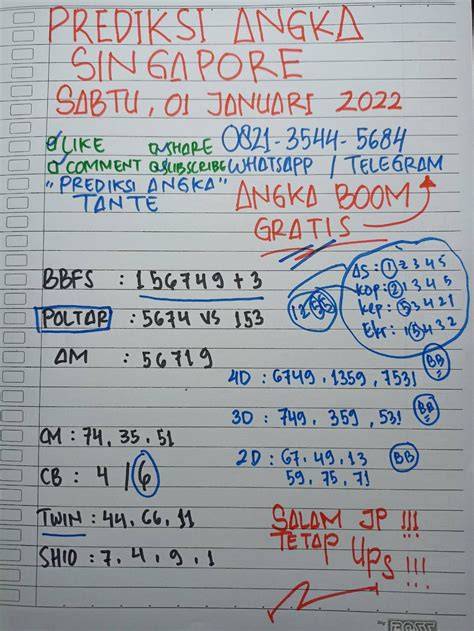 PREDIKSI ANGKA
SINGAPORE
SABTU, 01 JANUARI 2022
LIKE SHARE 0821-3544-5684
COMMENT SUBSCRIBE WHATSAPP / TELEGRAM
"PREDIKSI ANGKA"
TANTE
ANGKA BOOM
GRATIS
AS : 1 2 3 4 5
KOP : 2 1 3 4 5
Kep : 5 3 4 2 1
Ekr : 1 5 4 3 2
BBFS : 156749 + 3
POLTAR : 5674 VS 153
AM : 56719
4D : 6749, 1359, 7531 BB
3D : 749, 359, 531 BB
CM : 74, 35, 51
2D : 67, 49, 13 BB
59, 75, 71
CB : 4 / 6
TWIN : 44, 66, 11
SHIO : 7, 4, 9, 1
SALAM JP !!!
TETAP UPS !!!
By